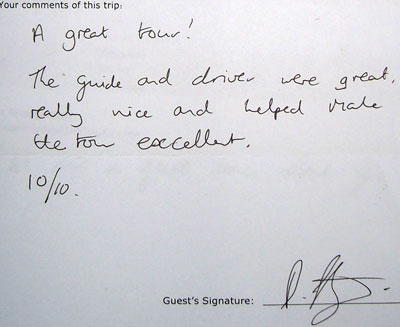 Your comments of this trip:
A great tour!
The guide and driver were great,
really nice and helped make
the tour excellent.
10/10.
Guest's Signature: